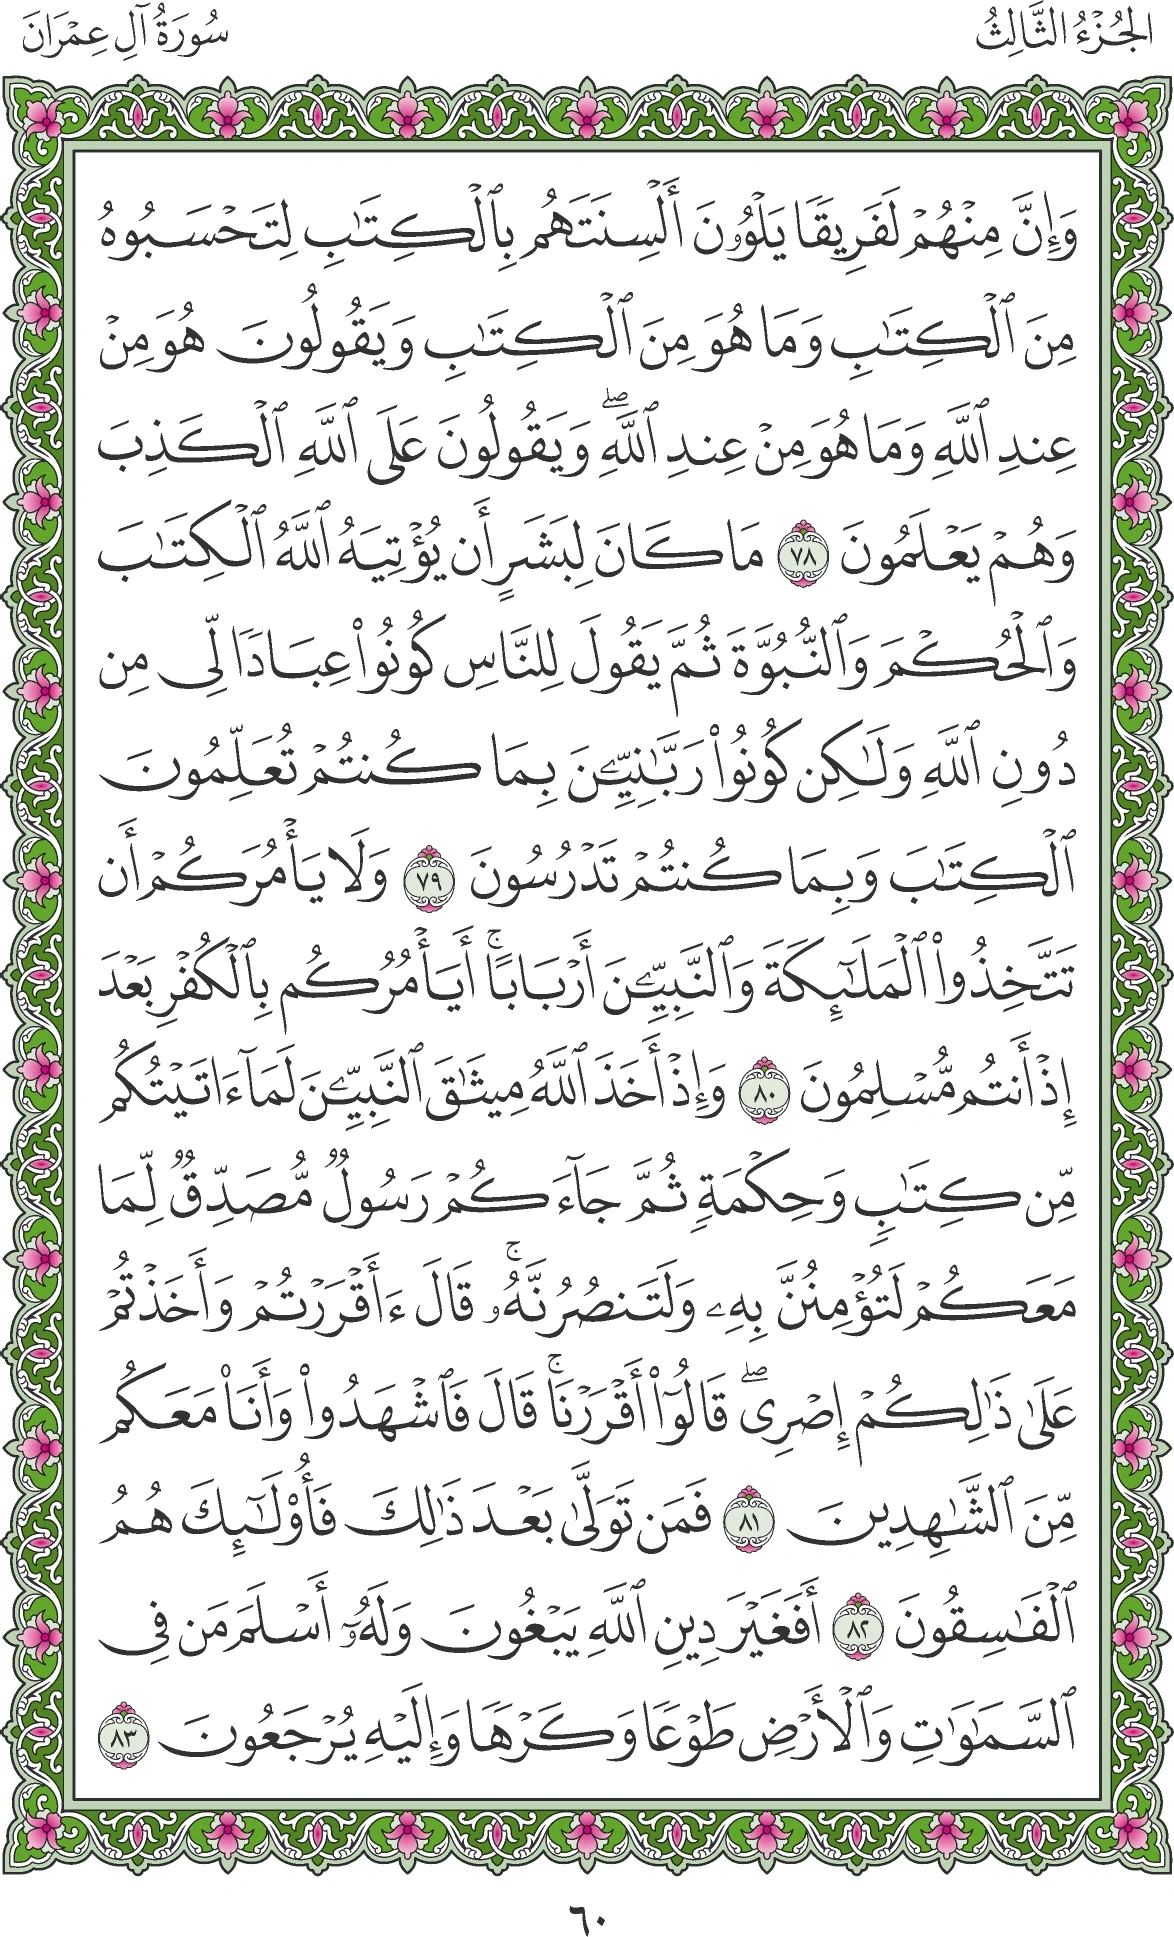 الجُزْءُ الثَّالِثُ
سُورَةُ آلِ عِمْرَانَ
وَإِنَّ مِنْهُمْ لَفَرِيقًا يَلْوُۥنَ أَلْسِنَتَهُم بِٱلْكِتَـٰبِ لِتَحْسَبُوهُ
مِنَ ٱلْكِتَـٰبِ وَمَا هُوَ مِنَ ٱلْكِتَـٰبِ وَيَقُولُونَ هُوَ مِنْ
عِندِ ٱللَّهِ وَمَا هُوَ مِنْ عِندِ ٱللَّهِۖ وَيَقُولُونَ عَلَى ٱللَّهِ ٱلْكَذِبَ
وَهُمْ يَعْلَمُونَ ٧٨ مَا كَانَ لِبَشَرٍ أَن يُؤْتِيَهُ ٱللَّهُ ٱلْكِتَـٰبَ
وَٱلْحُكْمَ وَٱلنُّبُوَّةَ ثُمَّ يَقُولَ لِلنَّاسِ كُونُوا۟ عِبَادًا لِّى مِن
دُونِ ٱللَّهِ وَلَـٰكِن كُونُوا۟ رَبَّـٰنِيِّـۧنَ بِمَا كُنتُمْ تُعَلِّمُونَ
ٱلْكِتَـٰبَ وَبِمَا كُنتُمْ تَدْرُسُونَ ٧٩ وَلَا يَأْمُرَكُمْ أَن
تَتَّخِذُوا۟ ٱلْمَلَـٰٓئِكَةَ وَٱلنَّبِيِّـۧنَ أَرْبَابًاۚ أَيَأْمُرُكُم بِٱلْكُفْرِ بَعْدَ
إِذْ أَنتُم مُّسْلِمُونَ ٨٠ وَإِذْ أَخَذَ ٱللَّهُ مِيثَـٰقَ ٱلنَّبِيِّـۧنَ لَمَآ ءَاتَيْتُكُم
مِّن كِتَـٰبٍ وَحِكْمَةٍ ثُمَّ جَآءَكُمْ رَسُولٌ مُّصَدِّقٌ لِّمَا
مَعَكُمْ لَتُؤْمِنُنَّ بِهِۦ وَلَتَنصُرُنَّهُۥۚ قَالَ ءَأَقْرَرْتُمْ وَأَخَذْتُمْ
عَلَىٰ ذَٰلِكُمْ إِصْرِىۖ قَالُوٓا۟ أَقْرَرْنَاۚ قَالَ فَٱشْهَدُوا۟ وَأَنَا۠ مَعَكُم
مِّنَ ٱلشَّـٰهِدِينَ ٨١ فَمَن تَوَلَّىٰ بَعْدَ ذَٰلِكَ فَأُو۟لَـٰٓئِكَ هُمُ
ٱلْفَـٰسِقُونَ ٨٢ أَفَغَيْرَ دِينِ ٱللَّهِ يَبْغُونَ وَلَهُۥٓ أَسْلَمَ مَن فِى
ٱلسَّمَـٰوَٰتِ وَٱلْأَرْضِ طَوْعًا وَكَرْهًا وَإِلَيْهِ يُرْجَعُونَ ٨٣
٦٠